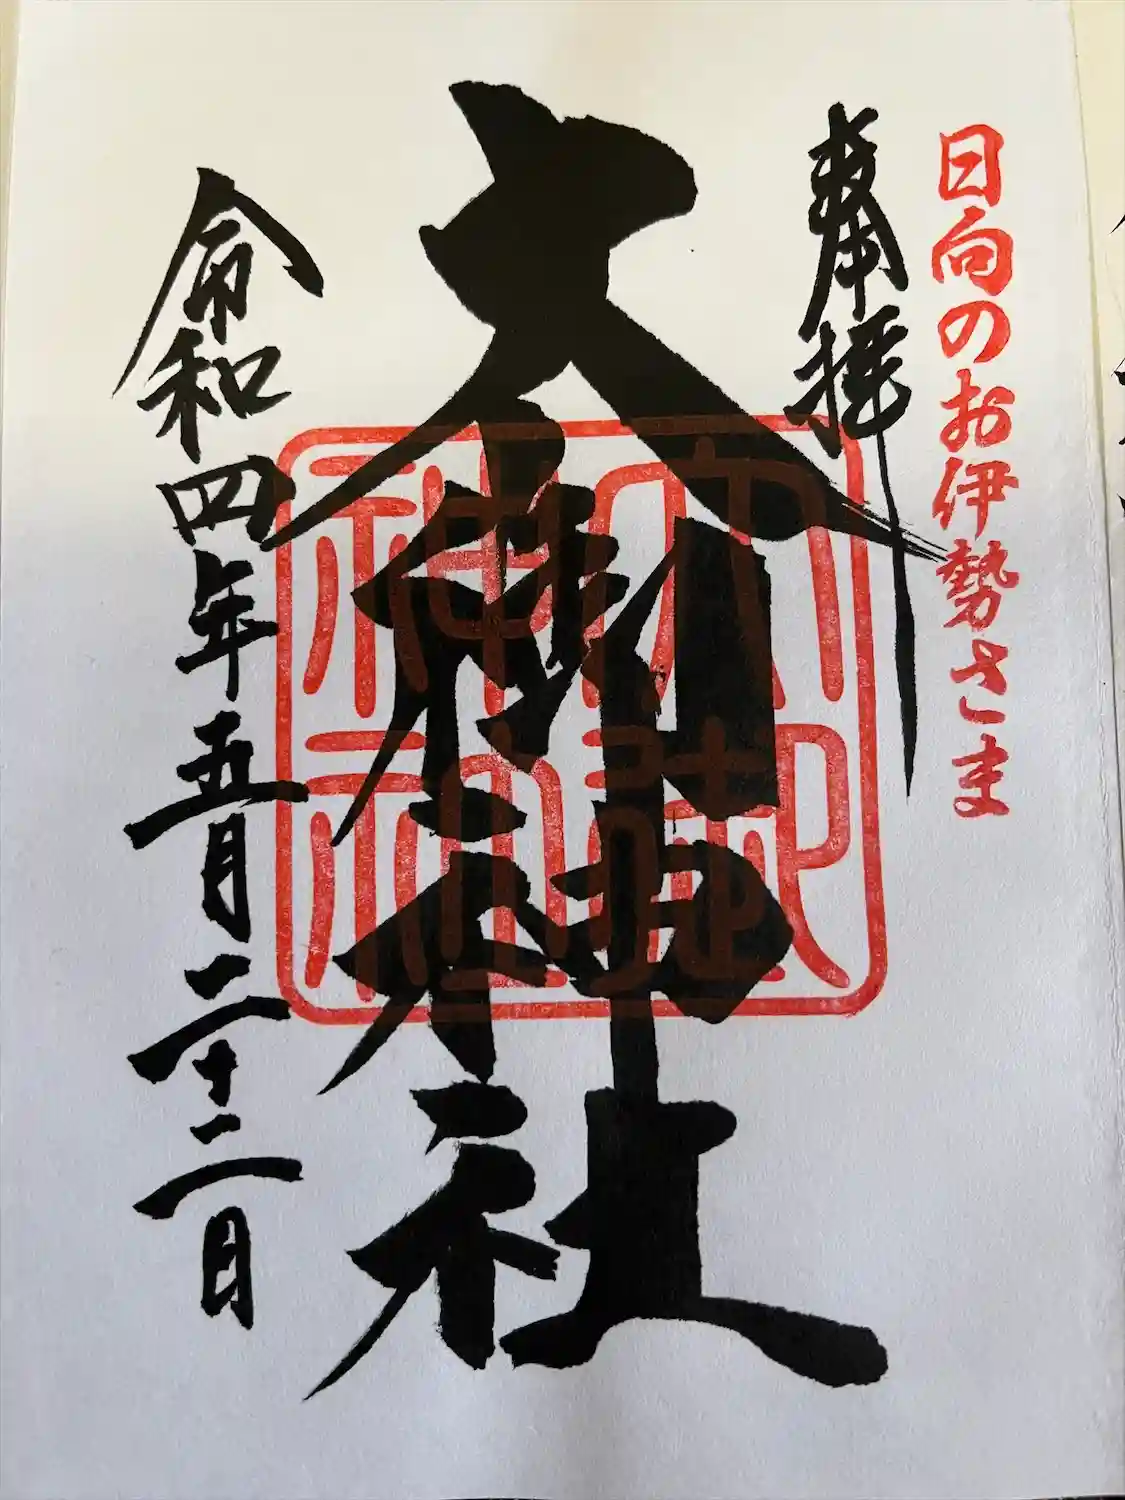 日向のお伊勢さま
奉拝
大御神社
大御
神社
令和四年五月二十二日